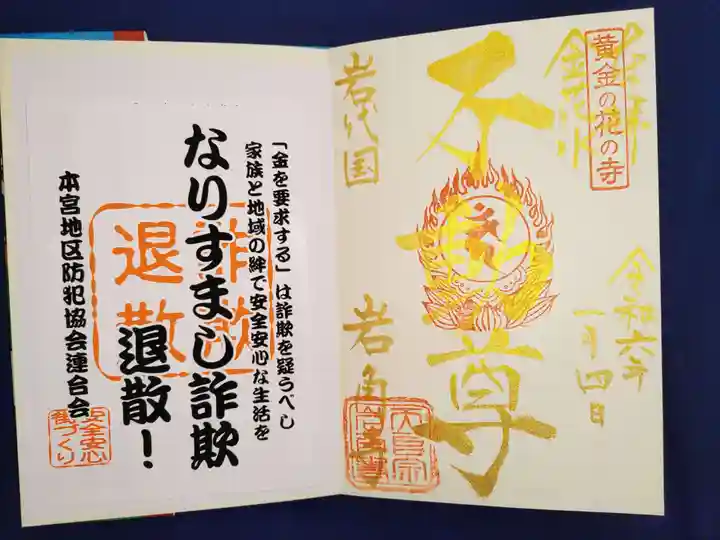 黄金の花の寺
奉拝
金花水
不動尊
岩代国
岩角寺
令和六年
一月四日
「金を要求する」は詐欺を疑うべし
家族と地域の絆で安全安心な生活を
なりすまし詐欺
退散!
詐欺
退散
本宮地区防犯協会連合会
安全安心
街づくり